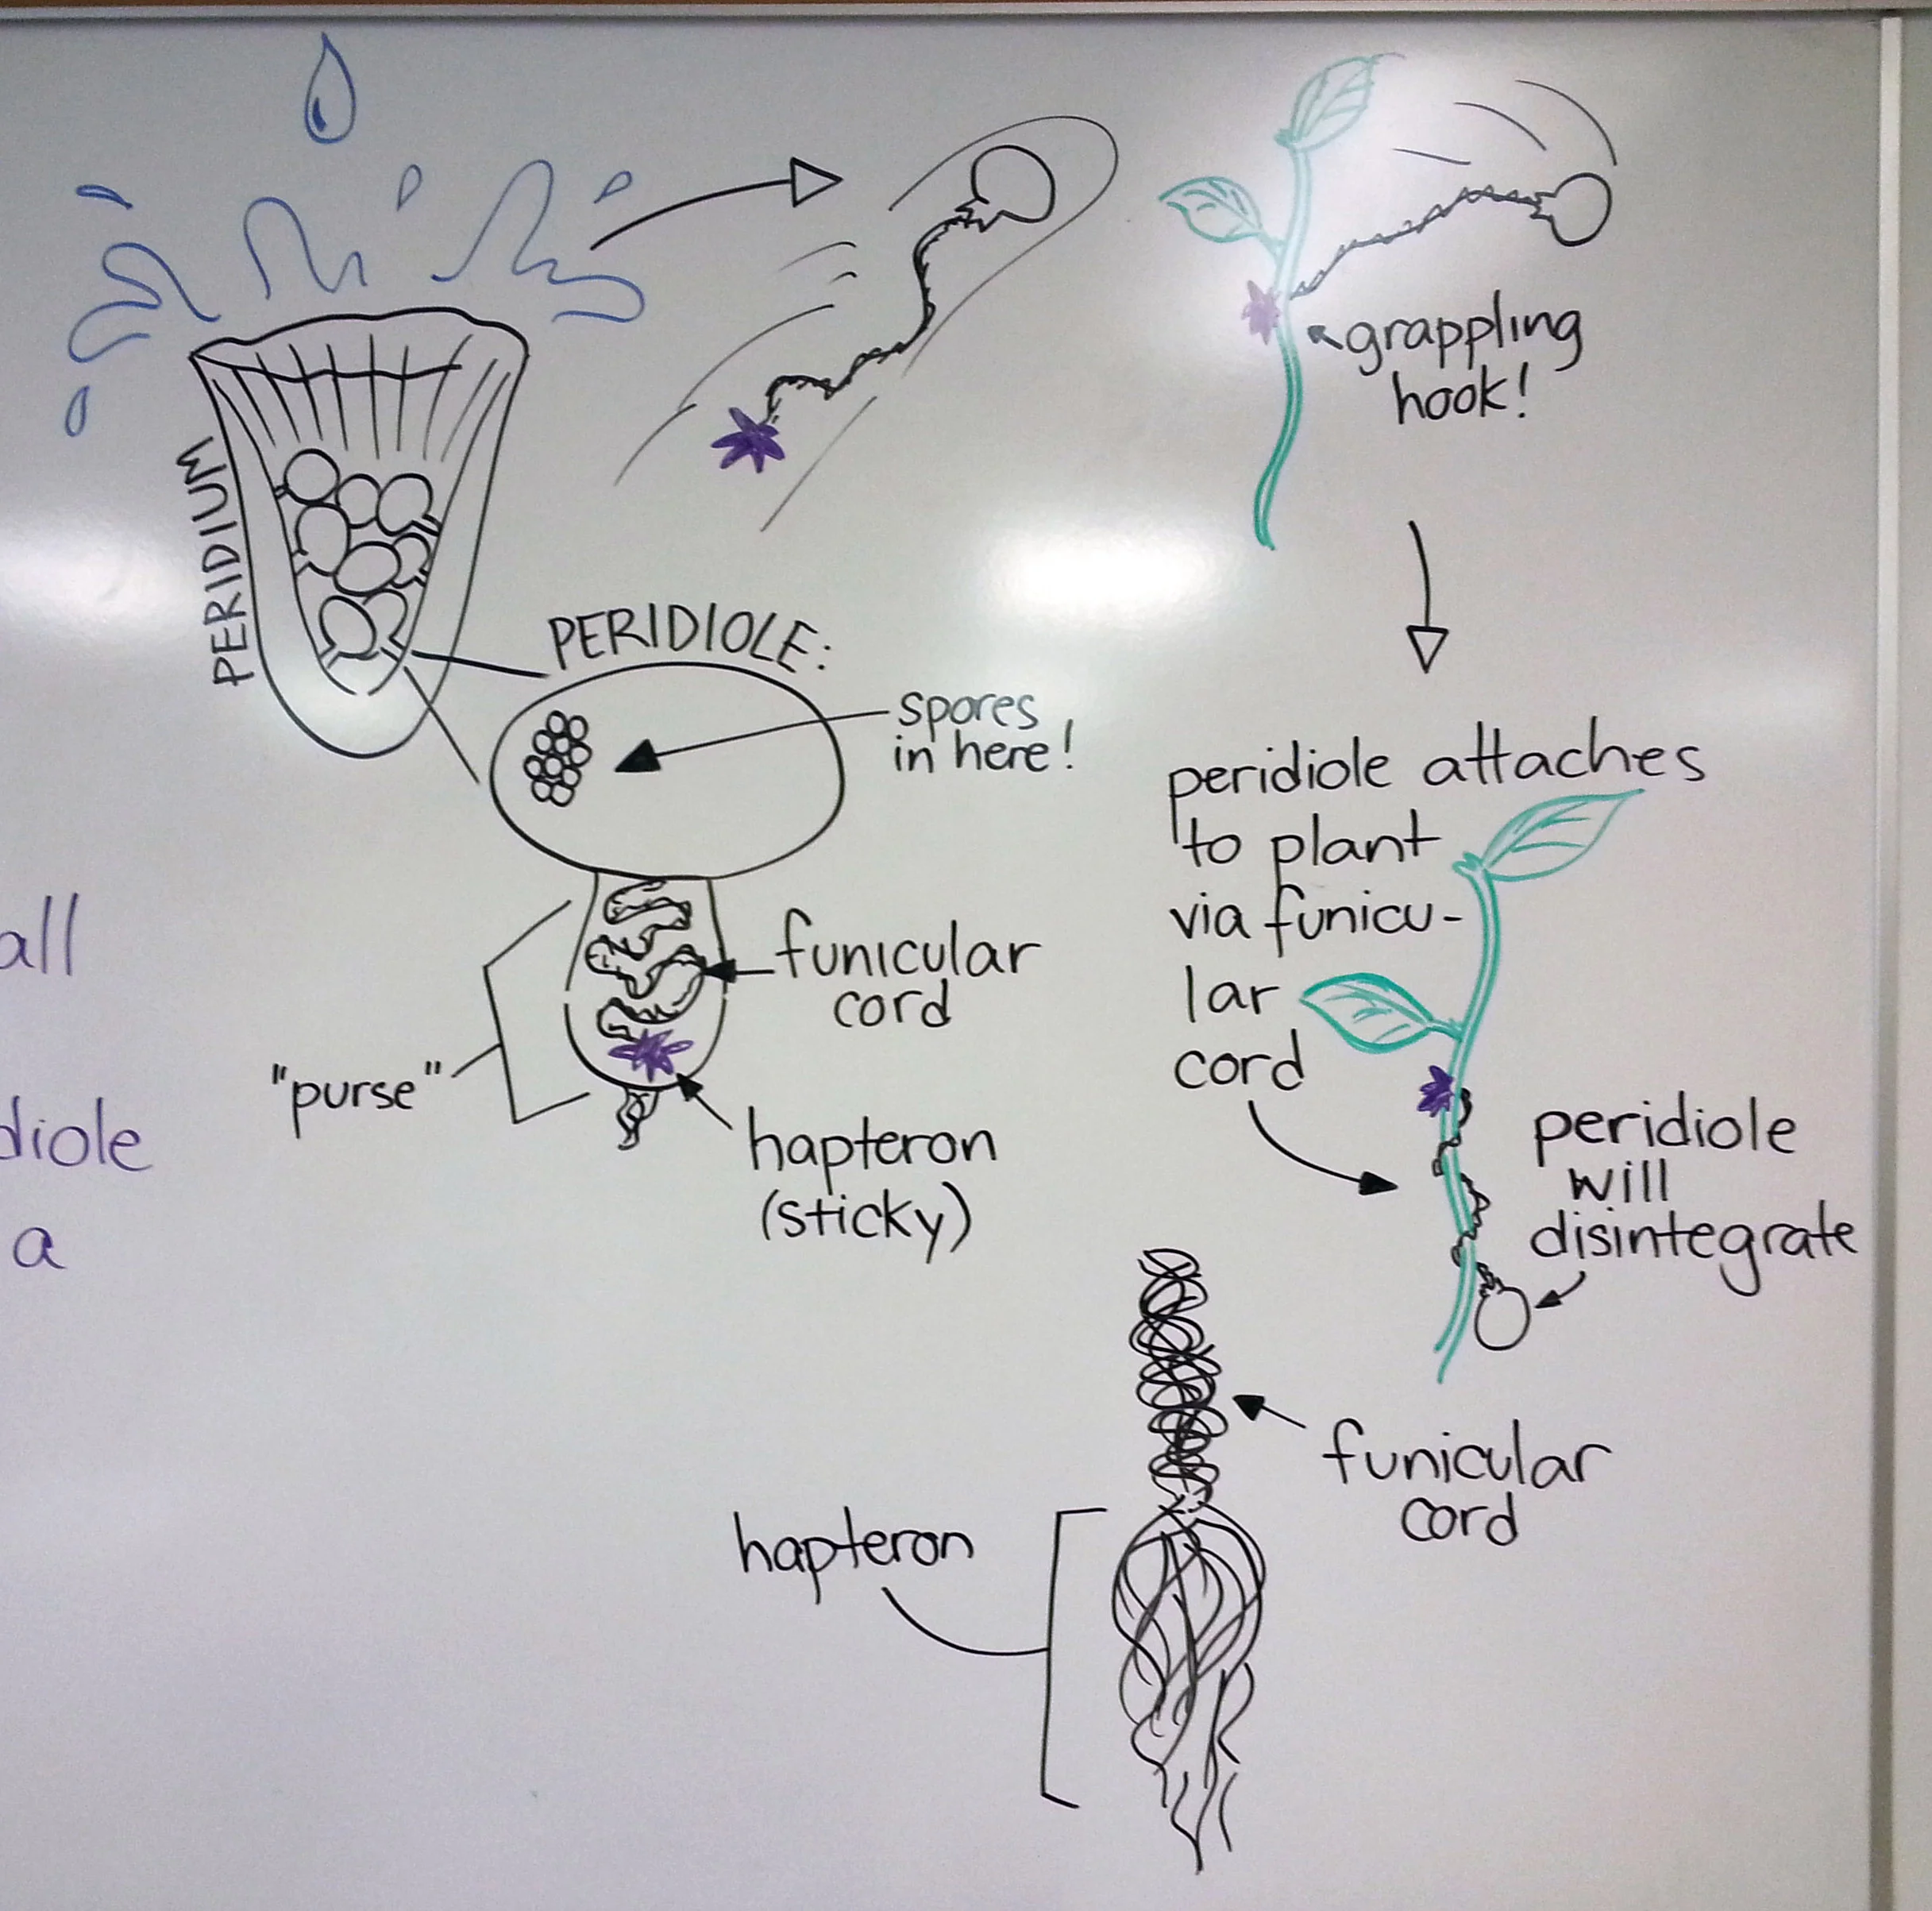 PERIDIUM
PERIDIOLE:
spores
in here!
funicular
cord
"purse"
hapteron
(sticky)
grappling
hook!
peridiole attaches
to plant
via funicu-
lar
cord
peridiole
will
disintegrate
funicular
cord
hapteron
all
diole
a